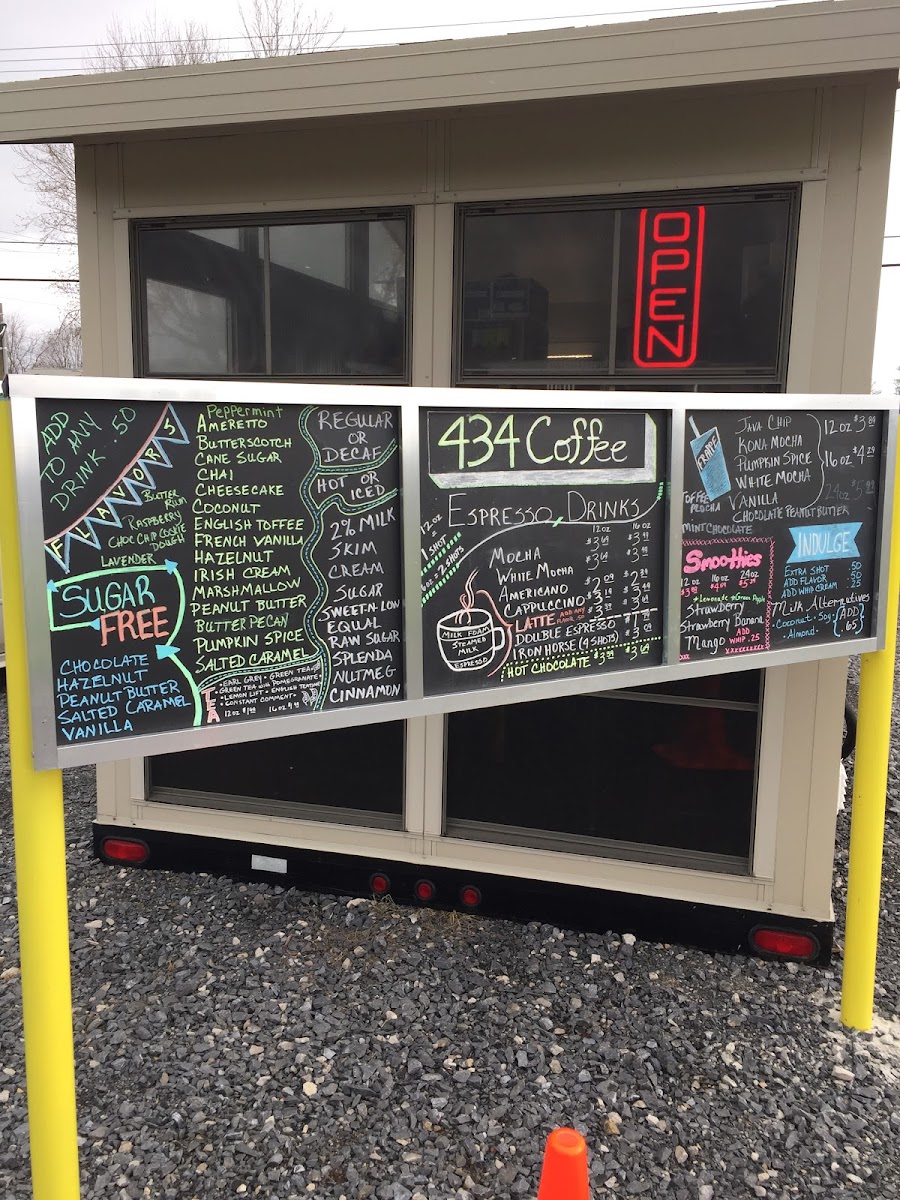 OPEN
ADD
TO ANY
DRINK .50
FLAVORS
BUTTER
RUM
RASPBERRY
CHOC CHIP COOKIE
DOUGH
LAVENDER
SUGAR
FREE
CHOCOLATE
HAZELNUT
PEANUT BUTTER
SALTED CARAMEL
VANILLA
PEPPERMINT
AMERETTO
BUTTERSCOTCH
CANE SUGAR
CHAI
CHEESECAKE
COCONUT
ENGLISH TOFFEE
FRENCH VANILLA
HAZELNUT
IRISH CREAM
MARSHMALLOW
PEANUT BUTTER
BUTTER PECAN
PUMPKIN SPICE
SALTED CARAMEL
TEA
• EARL GREY • GREEN TEA
• GREEN TEA WITH POMEGRANATE
• LEMON LIFT • ENGLISH TEATIME
• CONSTANT COMMENT
12 OZ 16 OZ
REGULAR
OR
DECAF
HOT OR
ICED
2% MILK
SKIM
CREAM
SUGAR
SWEET-N-LOW
EQUAL
RAW SUGAR
SPLENDA
NUTMEG
CINNAMON
434 Coffee
ESPRESSO DRINKS
12 OZ
1 SHOT
2 SHOTS
12 OZ 16 OZ
MOCHA
WHITE MOCHA
AMERICANO
CAPPUCCINO
LATTE ADD ANY
DOUBLE ESPRESSO
IRON HORSE (4 SHOTS)
HOT CHOCOLATE
MILK FOAM
STEAMED
MILK
ESPRESSO
FRAPPE
JAVA CHIP
KONA MOCHA
PUMPKIN SPICE
WHITE MOCHA
VANILLA
CHOCOLATE PEANUT BUTTER
TOFFEE
MOCHA
MINT CHOCOLATE
12 OZ
16 OZ $4.29
24 OZ
Smoothies
12 OZ 16 OZ 24 OZ
• Lemonade • Green Apple
Strawberry
Strawberry Banana
Mango ADD
WHIP .25
INDULGE
EXTRA SHOT .50
ADD FLAVOR .50
ADD WHIP CREAM .25
Milk Alternatives
• Coconut • Soy
• Almond •
ADD
65